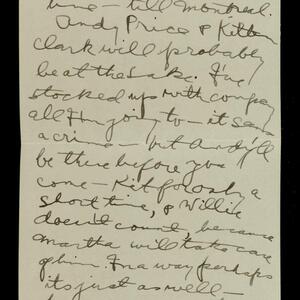 time — till Montreal.
Andy Price & Kitten
Clark will probably
be at the Lake. I've
stocked up with company
all I'm going to — it seems
a crime — but Andy'll
be there before you
come — Kit for only a
short time, & Willie
doesn't count, because
Martha will take care
of him. In a way perhaps
its just as well —